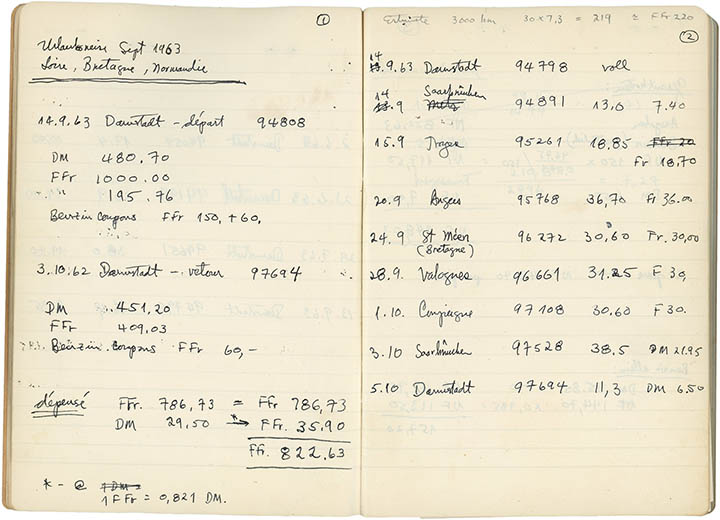 ①
Urlaubsreise Sept 1963
Loire, Bretagne, Normandie
14.9.63 Darmstadt – départ 94808
DM 480.70
FFr 1000.00
" 195.76
Benzin coupons FFr 150,+60,
3.10.62 Darmstadt – retour 97694
DM 451,20
FFr 409.03
Benzin coupons FFr 60,–
dépensé FFr. 786,73 = FFr 786,73
DM 29,50 *→ FFr. 35.90
FFr. 822.63
* – @ 1 DM =
1 FFr = 0,821 DM.
3000 km 30 x 7,3 = 219 ≃ FFr 220
②
14.9.63 Darmstadt 94798 voll
14.9 Saarbrücken 94891 13,0 7.40
15.9 Troyes 95261 18,85 FFr 20
Fr 18.70
20.9 Angers 95768 36,70 Fr 36.00
24.9 St Méen 96272 30,60 Fr. 30,00
(Bretagne)
28.9. Valognes 96.661 31.25 F 30,
1.10. Compiegne 97108 30.60 F 30.
3.10 Saarbrücken 97528 38.5 DM 21.95
5.10 Darmstadt 97694 11,3 DM 6.50